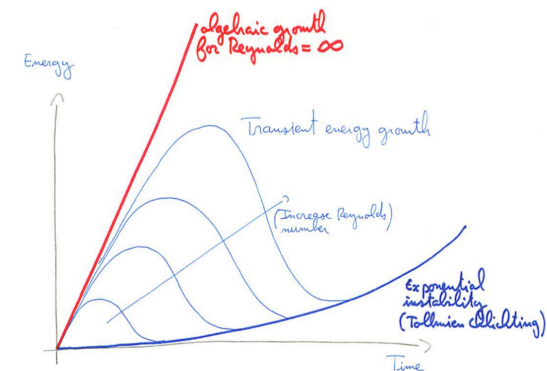 algebraic growth
for Reynolds = ∞
Energy
Transient energy growth
(Increase Reynolds)
number
Exponential
instability
(Tollmien Schlichting)
Time